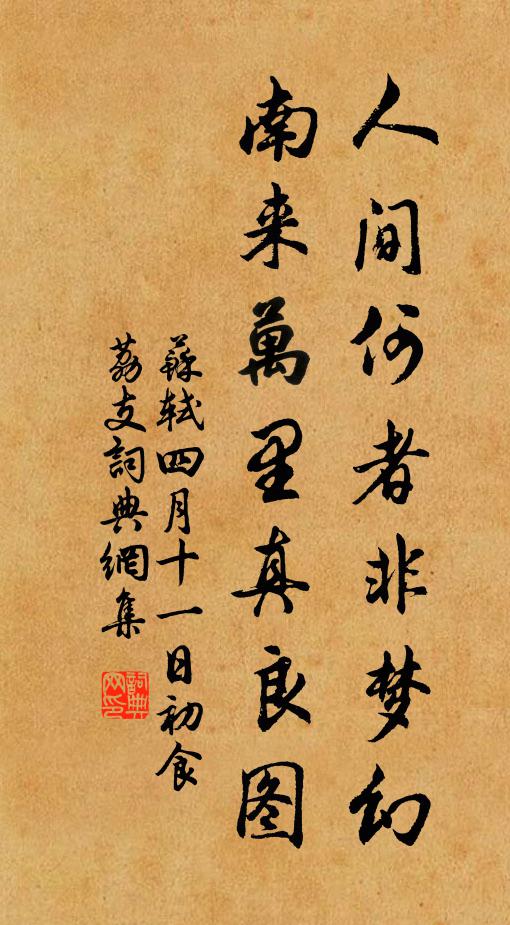 人间何者非梦幻
南来萬里真良图
蘇轼四月十一日初食
荔支詞典網集
詞典网印